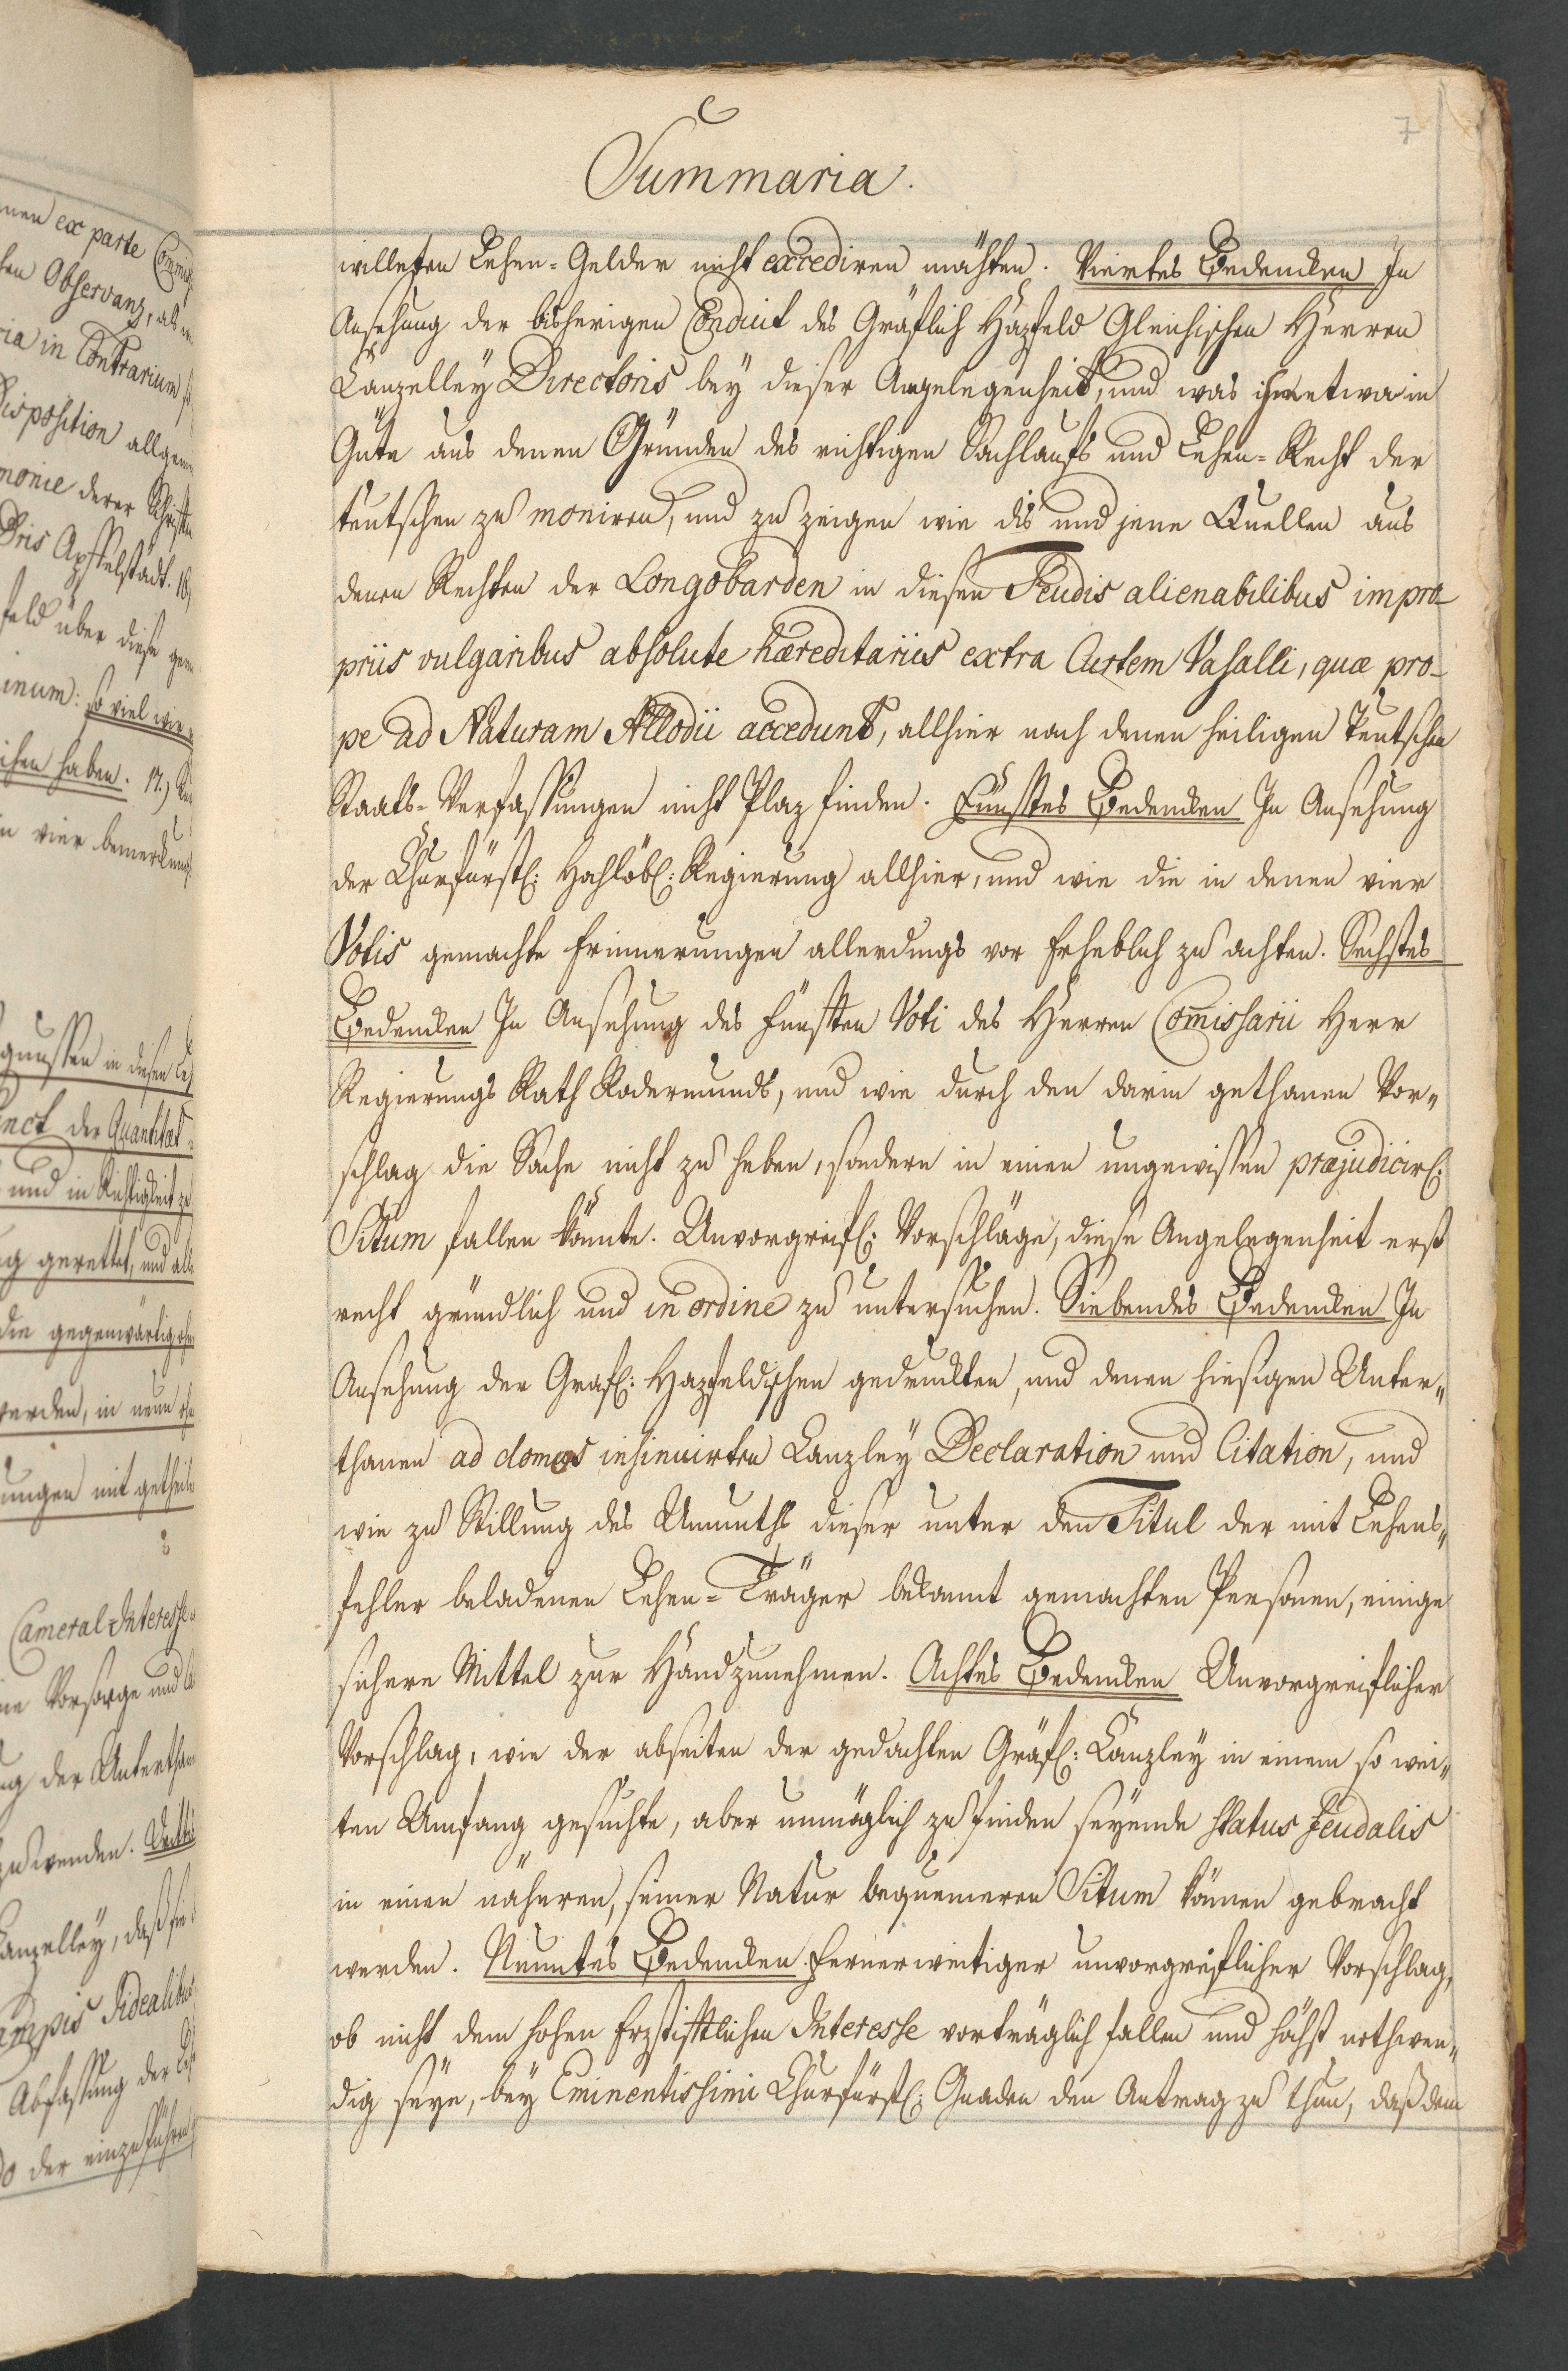 7
Summaria.
willeten Lehen-Gelder nicht excediren möchten. Viertes Bedencken In
Ansehung der bisherigen Conduit des Gräflich Hazfeld Gleichischen Herren
Canzelley Directoris bey dieser Angelegenheit, und was ihm etwa in
Güte aus denen Gründen des richtigen Sachlaufs und Lehen-Recht der
teutschen zu moniren, und zu zeigen wie dis und jene Quellen aus
denen Rechten der Longobarden in diesen Feudis alienabilibus impro-
priis vulgaribus absolute hæreditariis extra Curtem Vasalli, quæ pro-
pe ad Naturam Allodii accedunt, allhier nach denen heiligen Teutschen
Staats-Verfassungen nicht Plaz finden. Fünftes Bedencken In Ansehung
der Churfürstl: Hochlöbl: Regierung allhier, und wie die in denen vier
Votis gemachte Erinnerungen allerdings vor Erheblich zu achten. Sechstes
Bedencken In Ansehung des fünften Voti des Herren Comissarii Herr
Regierungs Rath Rodermunds, und wie durch den darin gethanen Vor-
schlag die Sache nicht zu heben, sondern in einen ungewissen præjudicirl:
Situm fallen könnte. Unvorgreifl: Vorschläge, diese Angelegenheit erst
recht gründlich und in ordine zu untersuchen. Siebendes Bedencken In
Ansehung der Gräfl: Hazfeldischen gedruckten, und denen hiesigen Unter-
thanen ad domos insinuirten Canzley Declaration und Citation, und
wie zu Stillung des Unmuths dieser unter den Titul der mit Lehens-
fehler beladenen Lehen-Träger bekannt gemachten Personen, einige
sichere Mittel zur Hand zunehmen. Achtes Bedencken Unvorgreiflicher
Vorschlag, wie der abseiten der gedachten Gräfl: Canzley in einem so wei-
ten Umfang gesuchte, aber unmöglich zu finden seyende status feudalis
in einen näheren, seiner Natur bequemeren Situm können gebracht
werden. Neuntes Bedencken. Fernerweitiger unvorgreiflicher Vorschlag,
ob nicht dem hohen Erzstiftlichen Interesse vorträglich fallen und höchst nothwen-
dig seye, bey Eminentissimi Churfürstl: Gnaden den Antrag zu thun, daß dem